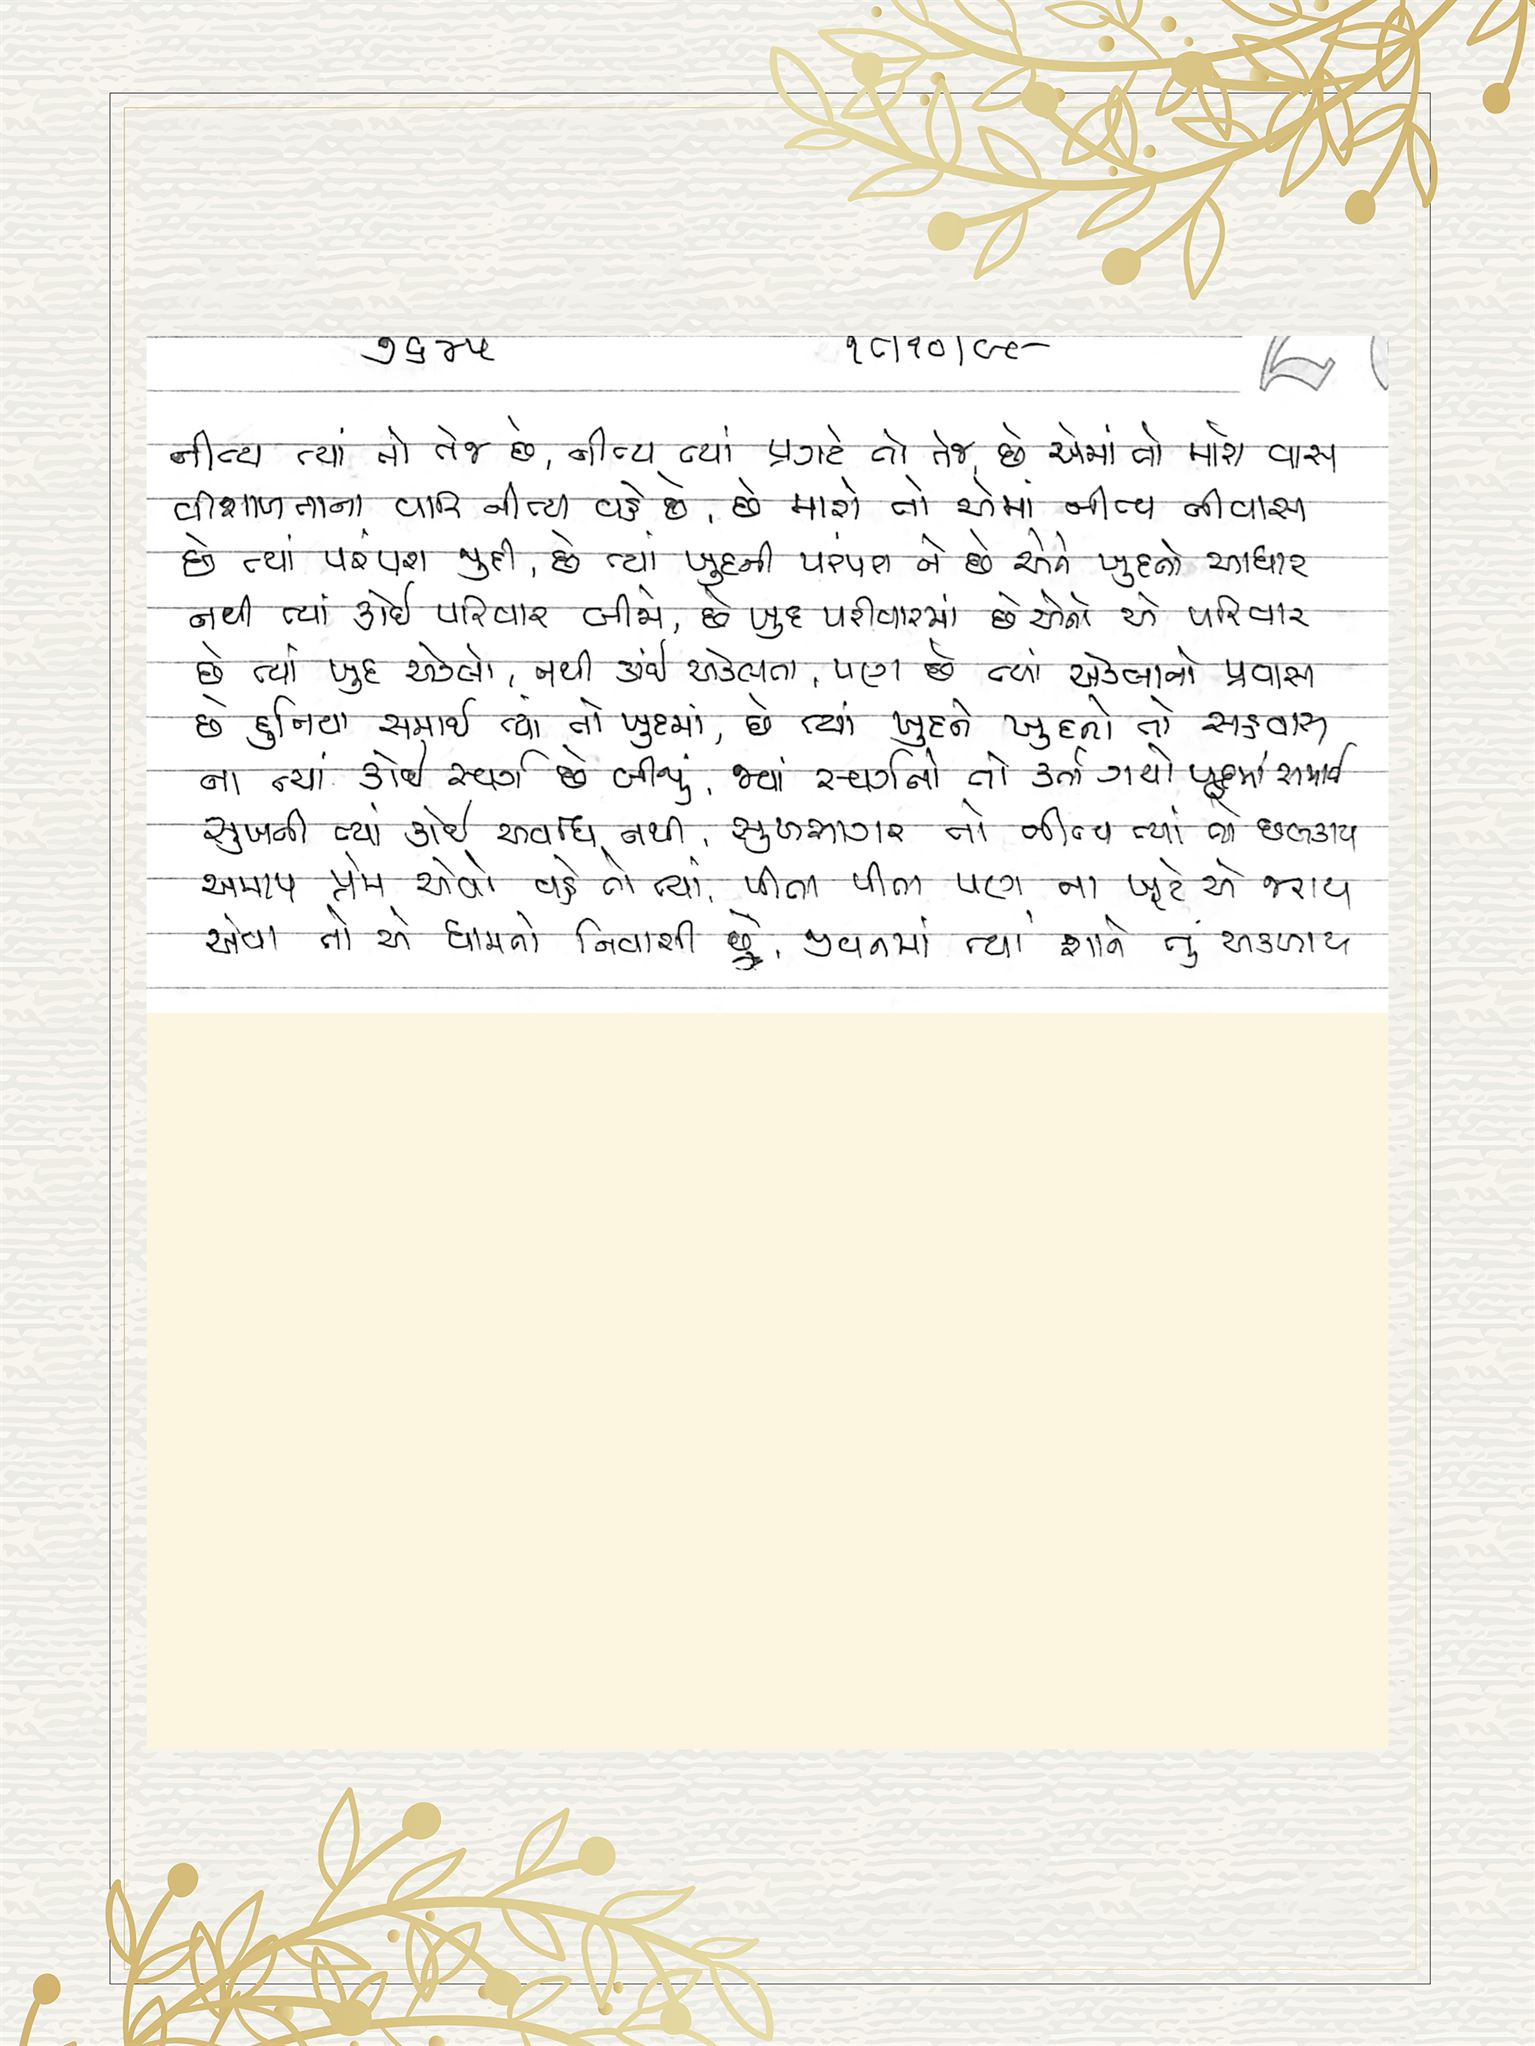 ૭૬૪૫ ૧૮/૧૦/૯૮
નીત્ય ત્યાં તો તેજ છે, નીત્ય ત્યાં પ્રગટે તો તેજ છે એમાં તો મારો વાસ
વીશાળતાના વારિ નીત્ય વહે છે, છે મારો તો એમાં નીત્ય નીવાસ
છે ત્યાં પરંપરા જુદી, છે ત્યાં ખુદની પરંપરા ને છે એને ખુદનો આધાર
નથી ત્યાં કોઈ પરિવાર બીજો, છે ખુદ પરીવારમાં છે એનો એ પરિવાર
છે ત્યાં ખુદ એકલો, નથી કાંઈ એકલતા, પણ છે ત્યાં એકલાનો પ્રવાસ
છે દુનિયા સમાઈ ત્યાં તો ખુદમાં, છે ત્યાં ખુદને ખુદનો તો સહવાસ
ના ત્યાં કોઈ સ્વર્ગ છે બીજું, જ્યાં સ્વર્ગનો તો કર્તા ગયો ખુદમાં સમાઈ
સુખની ત્યાં કોઈ અવધિ નથી, સુખસાગર તો નીત્ય ત્યાં તો છલકાય
અમાપ પ્રેમ એવો વહે તો ત્યાં, પીતા પીતા પણ ના ખૂટે એ જરાય
એવા તો એ ધામનો નિવાસી છું, જીવનમાં ત્યાં શાને તું અકળાય